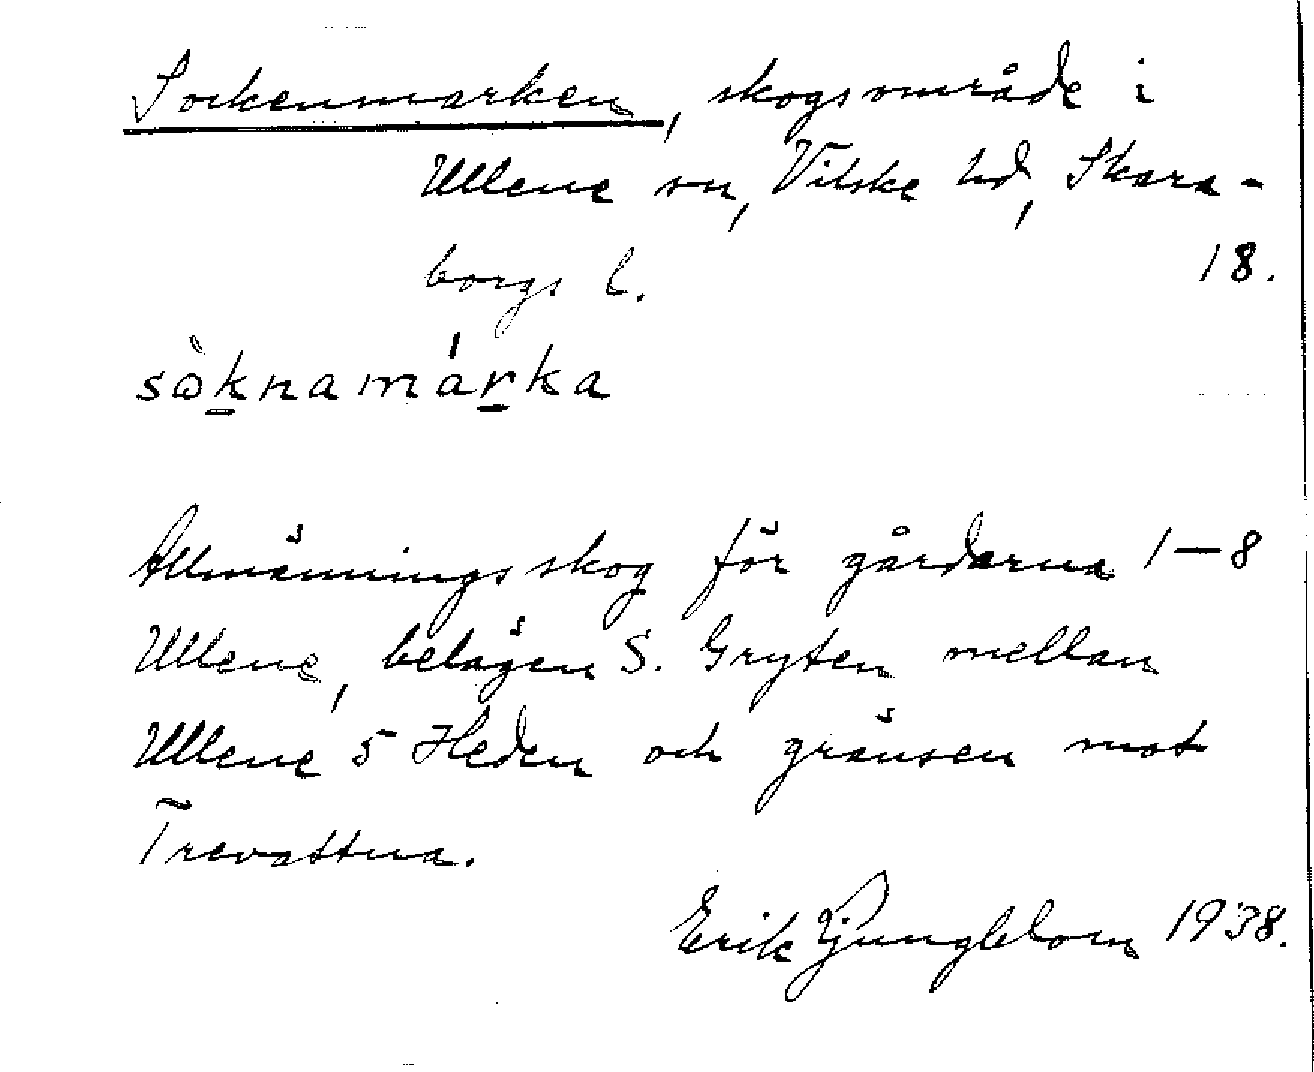 Sockenmarken, skogsområde i
Ullene sn, Vilske hd, Skara-
borgs l. 18.
sòknamárka
Allmänningsskog för gårdarna 1—8
Ullene, belägen S. Gryten mellan
Ullene 5 Heden och gränsen mot
Trevattna.
Erik Ljungblom 1938.